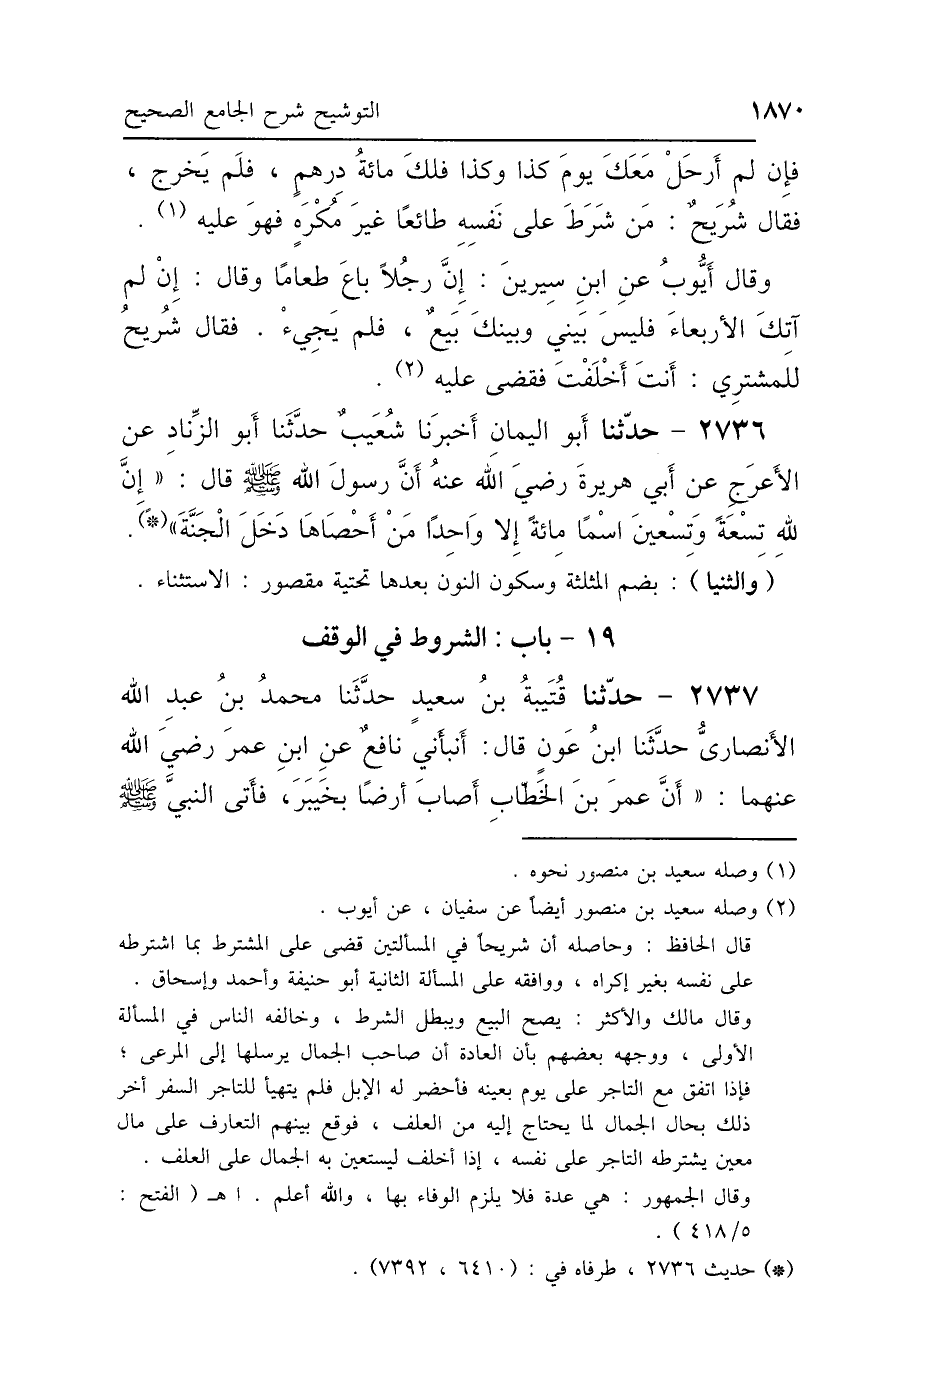 ١٨٧٠ التوشيح شرح الجامع الصحيح
فإن لم أَرحَلْ مَعَكَ يومَ كذا وكذا فلكَ مائةُ دِرهمٍ ، فلَم يَخرج ،
فقال شُرَيحٌ : مَن شَرَطَ على نَفسِهِ طائعًا غيرَ مُكْرَهٍ فهوَ عليه (١) .
وقال أَيُّوبُ عنِ ابنِ سِيرينَ : إنَّ رجُلاً باعَ طعامًا وقال : إنْ لم
آتِكَ الأربعاءَ فليسَ بَيني وبينكَ بَيعٌ ، فلم يَجيءْ . فقال شُريحُ
للمشترِي : أَنتَ أَخْلَفْتَ فقضى عليه (٢) .
٢٧٣٦ - حدّثنا أبو اليمانِ أخبرَنا شُعَيبٌ حدَّثَنا أبو الزِّنادِ عن
الأَعرَجِ عن أَبي هريرةَ رضيَ الله عنهُ أنَّ رسولَ الله ﷺ قال : « إنَّ
للهِ تِسْعَةً وَتِسْعينَ اسْمًا مائةً إلا وَاحِدًا مَنْ أَحْصَاهَا دَخَلَ الْجَنَّةَ»(*).
( والثنيا ) : بضم المثلثة وسكون النون بعدها تحتية مقصور : الاستثناء .
١٩ - باب : الشروط في الوقف
٢٧٣٧ - حدّثنا قُتَيبةُ بنُ سعيدٍ حدَّثَنا محمدُ بنُ عبدِ الله
الأنصاريُّ حدَّثَنا ابنُ عَونٍ قال: أنبأني نافعٌ عنِ ابنِ عمرَ رضيَ الله
عنهما : « أنَّ عمرَ بنَ الخَطّابِ أصابَ أرضًا بخَيبَرَ، فأَتى النبيَّ ﷺ
(١) وصله سعيد بن منصور نحوه .
(٢) وصله سعيد بن منصور أيضاً عن سفيان ، عن أيوب .
قال الحافظ : وحاصله أن شريحاً في المسألتين قضى على المشترط بما اشترطه
على نفسه بغير إكراه ، ووافقه على المسألة الثانية أبو حنيفة وأحمد وإسحاق .
وقال مالك والأكثر : يصح البيع ويبطل الشرط ، وخالفه الناس في المسألة
الأولى ، ووجهه بعضهم بأن العادة أن صاحب الجمال يرسلها إلى المرعى ؛
فإذا اتفق مع التاجر على يوم بعينه فأحضر له الإبل فلم يتهيأ للتاجر السفر أخر
ذلك بحال الجمال لما يحتاج إليه من العلف ، فوقع بينهم التعارف على مال
معين يشترطه التاجر على نفسه ، إذا أخلف ليستعين به الجمال على العلف .
وقال الجمهور : هي عدة فلا يلزم الوفاء بها ، والله أعلم . ا هـ ( الفتح :
٤١٨/٥ ) .
(*) حديث ٢٧٣٦ ، طرفاه في : (٦٤١٠ ، ٧٣٩٢) .